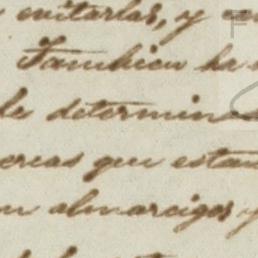 evitarlas, y
Tambien ha
de determin
creas que estan
almarcigos y